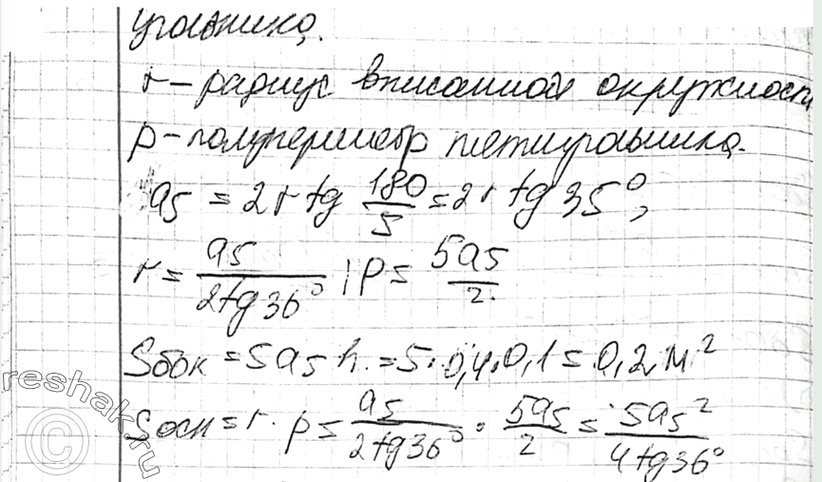 угольника.
r – радиус вписанной окружности
p – полупериметр пятиугольника.
a₅ = 2r tg 180/5 = 2r tg 35°,
r = a₅/(2tg36°) ; P = 5a₅/2
Sбок = 5a₅h = 5·0,4·0,1 = 0,2 м²
Sосн = r · p = a₅/(2tg36°) · 5a₅/2 = 5a₅²/(4tg36°)
© reshak.ru